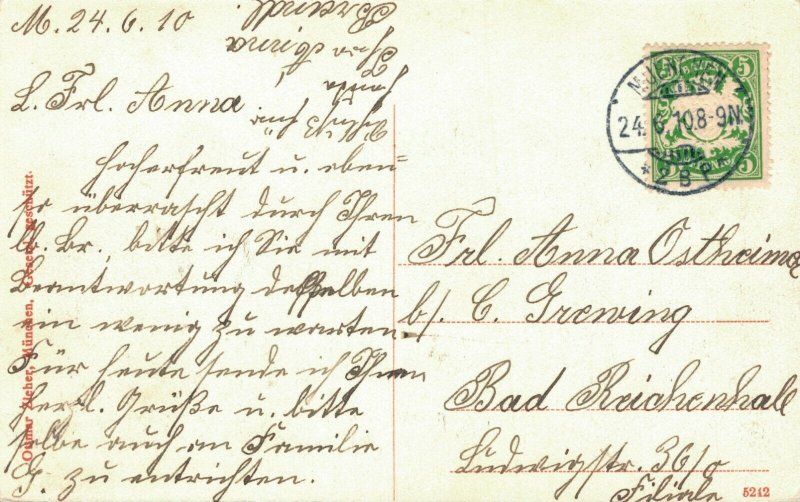 M. 24. 6. 10
L. Frl. Anna!
Hocherfreut u. eben=
so überrascht durch Ihren
lb. Br., bitte ich Sie mit
Beantwortung desselben
ein wenig zu warten.
Für heute sende ich Ihnen
herzl. Grüße u. bitte
selbe auch an Familie
G. zu entrichten.
Ottmar Zieher, München. Gesetzl. geschützt.
5
5
5
5
MUENCHEN
24. 6. 10 8-9 N
* 2 B. P. *
Frl. Anna Ostheimer
b/. C. Grewing
Bad Reichenhall
Ludwigstr. 36/0
Filiale
5212